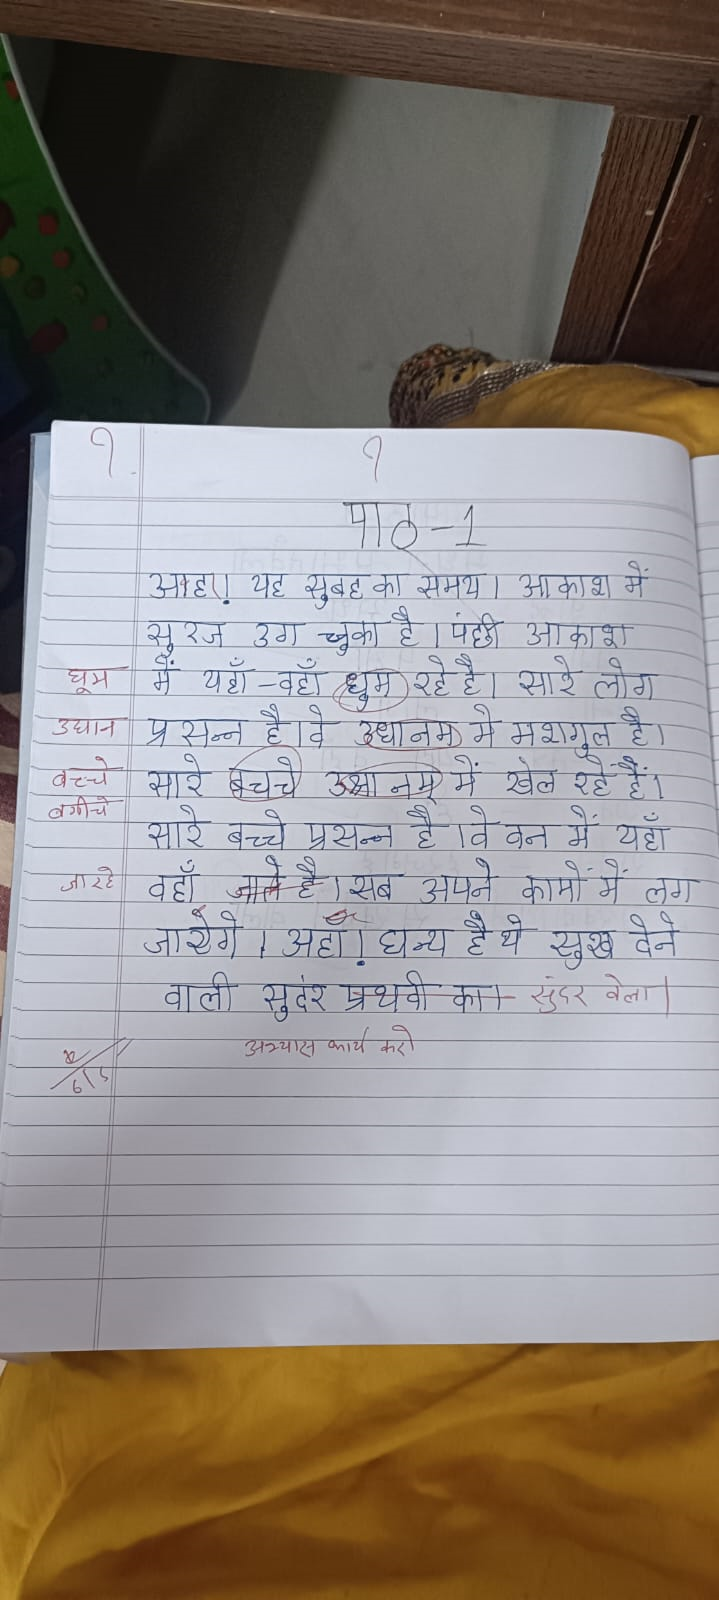 १. १
पाठ-1
आहा! यह सुबह का समय। आकाश में
सुरज उग चुका है। पंछी आकाश
घूम में यहाँ-वहाँ धुम रहे है। सारे लोग
उधान प्रसन्न है। वे उधानम मे मशगुल है।
बच्चे सारे बचचे में खेल रहे हैं।
बगीचे
सारे बच्चे प्रसन्न है। वे वन में यहाँ
जा रहे वहाँ जाते है। सब अपने कामों में लग
जायेगे। अहा! धन्य है ये सुख देने
वाली सुदंर प्रथवी का। सुंदर वेला।
अभ्यास कार्य करो